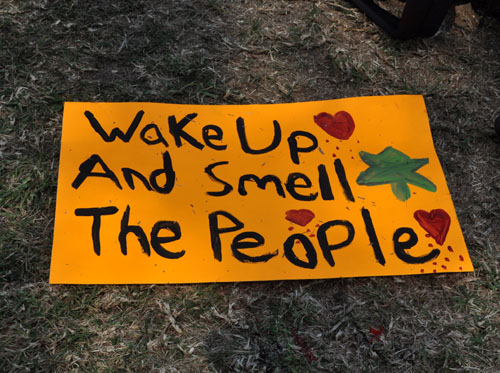 Wake Up
And Smell
The People